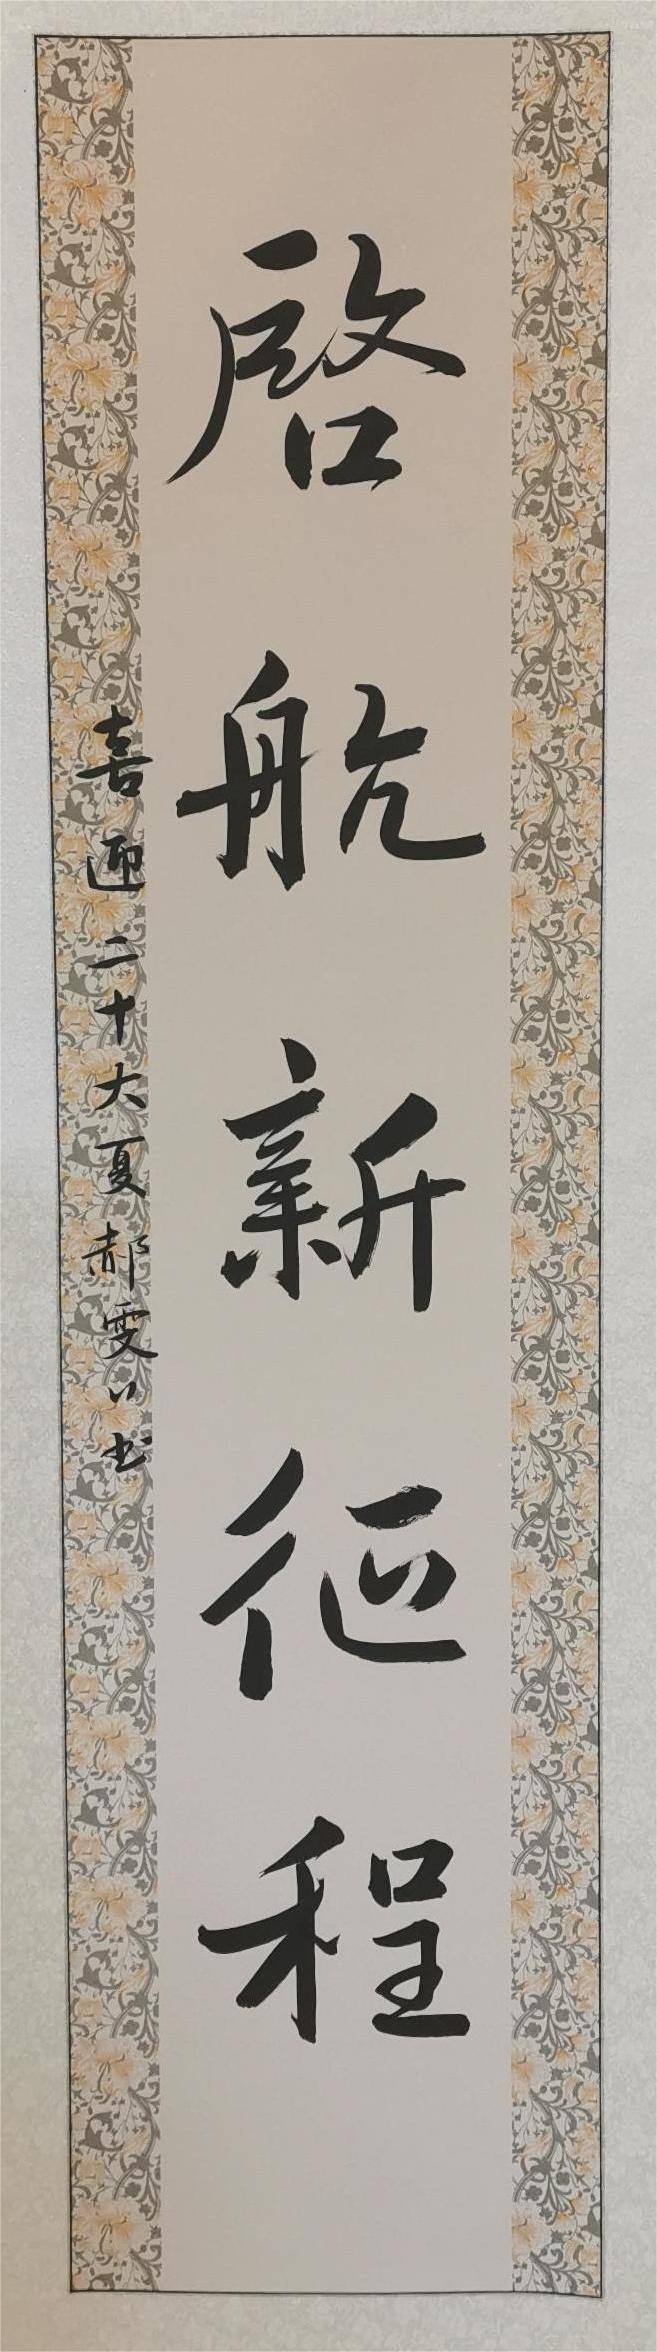 啓航新征程
喜迎二十大夏郝雯〃书